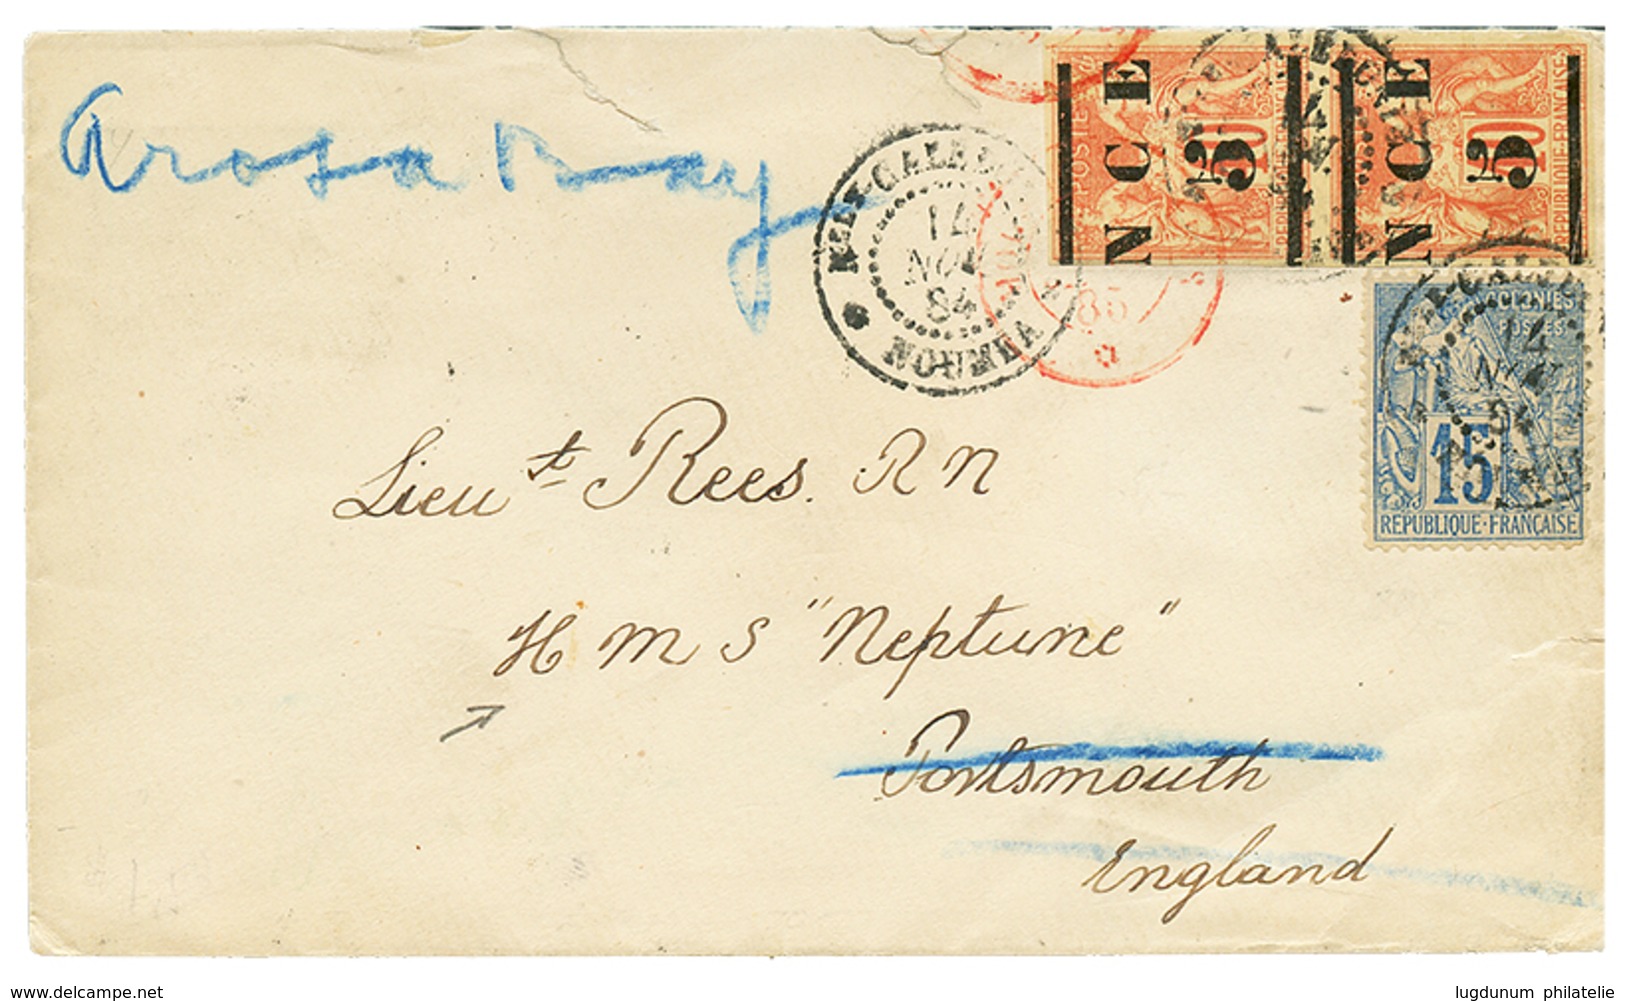 Arosa Bay
NLLE-CALEDONIE
14
NOV
84
NOUMEA
85
N C E
5
40
POSTES
REPUBLIQUE-FRANÇAISE
N C E
5
40
REPUBLIQUE-FRANÇAISE
COLONIES
POSTES
14
NOV
84
15
REPUBLIQUE-FRANÇAISE
Lieut Rees. R N
H M S "Neptune"
Portsmouth
England
www.delcampe.net
lugdunum philatelie